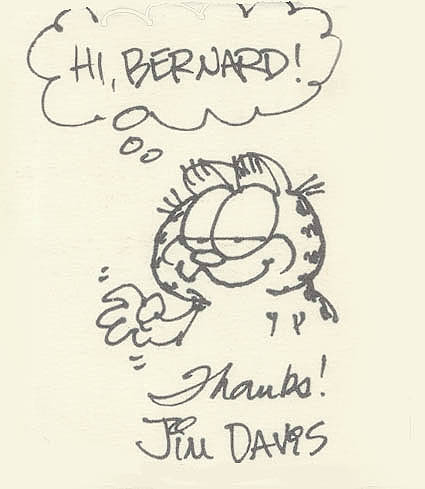 HI, BERNARD!
Thanks!
Jim DAVis